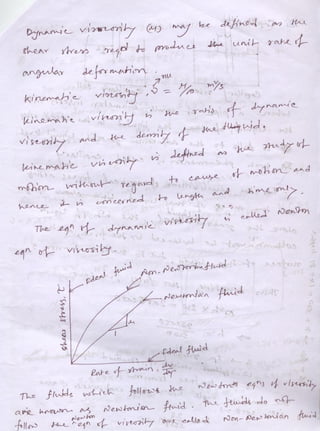 Dynamic viscosity (μ) may be defined as the
shear stress reqd to produce the unit rate of
angular deformation.
nu
kinematic viscosity, ν = μ/ρ, m²/s
kinematic viscosity is the ratio of dynamic
viscosity and the density of the liquid.
kinematic viscosity is defined as the study of
motion without regard to cause of motion and
hence it is concerned to length and time only.
The eqn of dynamic viscosity is called Newton
eqn of viscosity.
Ideal fluid
Non-Newtonian fluid
Newtonian fluid
shear stress, τ
μ
1
Ideal fluid
Rate of strain, du/dy
The fluids which follows the Newtons eqns of viscosity
are known as Newtonian fluid. The fluids do not
follow the Newton eqn of viscosity are called Non-Newtonian fluid